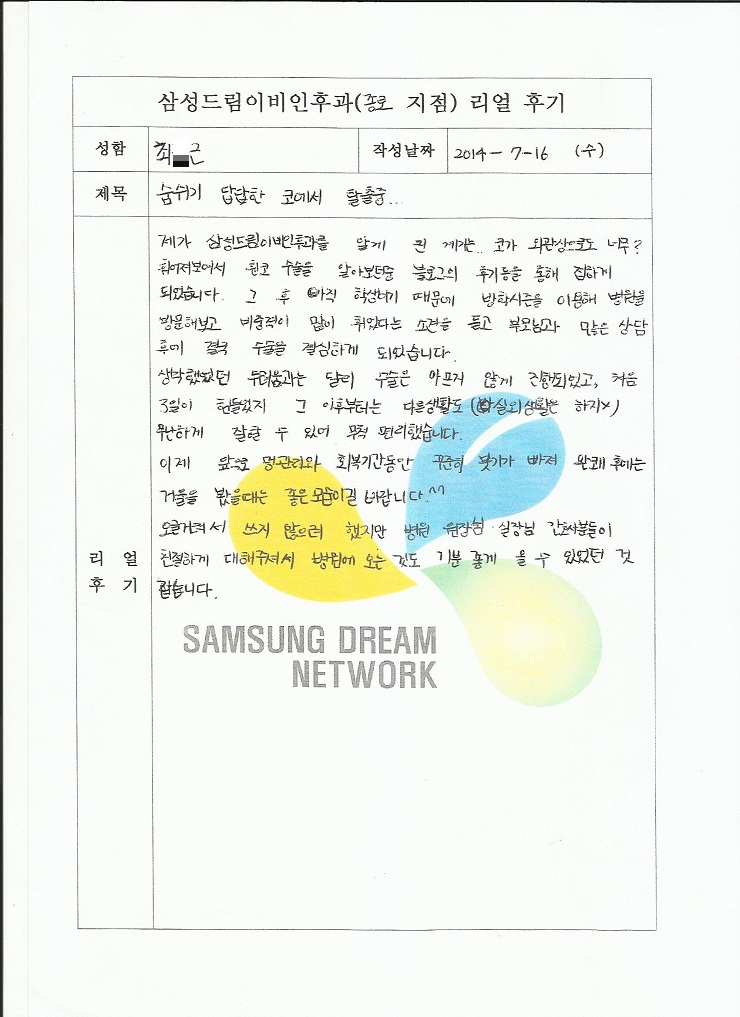 삼성드림이비인후과(종로 지점) 리얼 후기
성함 최 근 작성날짜 2014-7-16 (수)
제목 숨쉬기 답답한 코에서 탈출중...
제가 삼성드림이비인후과를 알게 된 계기는.. 코가 외관상으로도 너무?
휘어져보여서 휜코 수술을 알아보던중 블로그의 후기등을 통해 접하게
되었습니다. 그 후 아직 학생이기 때문에 방학시즌을 이용해 병원을
방문해보고 비중격이 많이 휘었다는 소견을 듣고 부모님과 많은 상담
후에 결국 수술을 결심하게 되었습니다.
생각했었던 두려움과는 달리 수술은 아프지 않게 진행되었고, 처음
3일이 힘들었지 그 이후부터는 다른생활도 ( 실외생활은 하지x)
무난하게 잘할 수 있어 무척 편리했습니다.
이제 앞으로 멍관리와 회복기간동안 꾸준히 붓기가 빠져 완쾌 후에는
거울을 봤을때는 좋은 모습이길 바랍니다.^^
오글거려서 쓰지 않으려 했지만 병원 원장님 실장님 간호사분들이
친절하게 대해주셔서 병원에 오는 것도 기분 좋게 올 수 있었던 것
같습니다.
리 얼
후 기
SAMSUNG DREAM
NETWORK